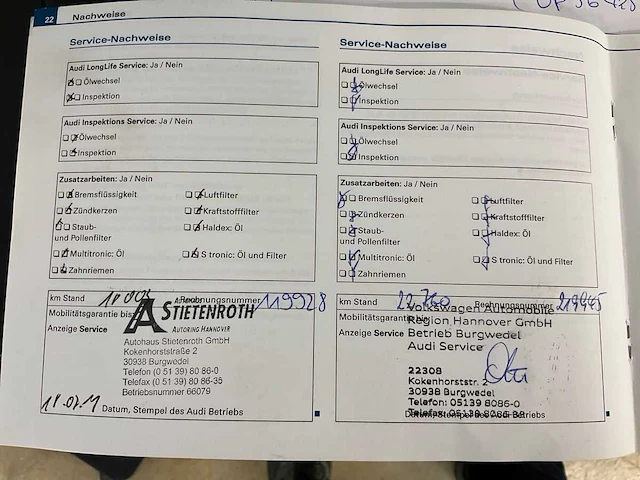 22 Nachweise
Service-Nachweise
Audi LongLife Service: Ja / Nein
Ölwechsel
Inspektion
Audi Inspektions Service: Ja / Nein
Ölwechsel
Inspektion
Zusatzarbeiten: Ja / Nein
Bremsflüssigkeit Luftfilter
Zündkerzen Kraftstofffilter
Staub- Haldex: Öl
und Pollenfilter
Multitronic: Öl S tronic: Öl und Filter
Zahnriemen
km Stand Rechnungsnummer 119928
Mobilitätsgarantie bis:
STIETENROTH
Anzeige Service
AUTORING HANNOVER
Autohaus Stietenroth GmbH
Kokenhorststraße 2
30938 Burgwedel
Telefon (0 51 39) 80 86-0
Telefax (0 51 39) 80 86-35
Betriebsnummer 66079
18.07.11 Datum, Stempel des Audi Betriebs
Service-Nachweise
Audi LongLife Service: Ja / Nein
Ölwechsel
Inspektion
Audi Inspektions Service: Ja / Nein
Ölwechsel
Inspektion
Zusatzarbeiten: Ja / Nein
Bremsflüssigkeit Luftfilter
Zündkerzen Kraftstofffilter
Staub- Haldex: Öl
und Pollenfilter
Multitronic: Öl S tronic: Öl und Filter
Zahnriemen
km Stand 22.760 Rechnungsnummer 219945
Volkswagen Automobile
Mobilitätsgarantie bis:
Region Hannover GmbH
Anzeige Service Betrieb Burgwedel
Audi Service
22308
Kokenhorststr. 2
30938 Burgwedel
Telefon: 05139 8086-0
Datum, Stempel des Audi Betriebs